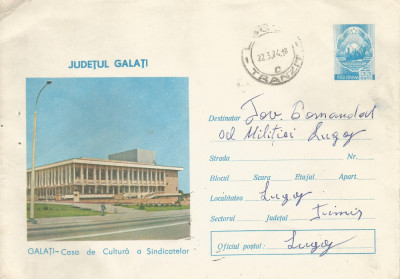 JUDEȚUL GALAȚI
22.3.74.18
TRANZIT
C
Destinatar Tov. Comandant
al Miliției Lugoj
Strada Nr.
Blocul Scara Etajul Apart.
Localitatea Lugoj
Sectorul Județul Timiș
Oficiul poștal: Lugoj
GALAȚI - Casa de Cultură a Sindicatelor